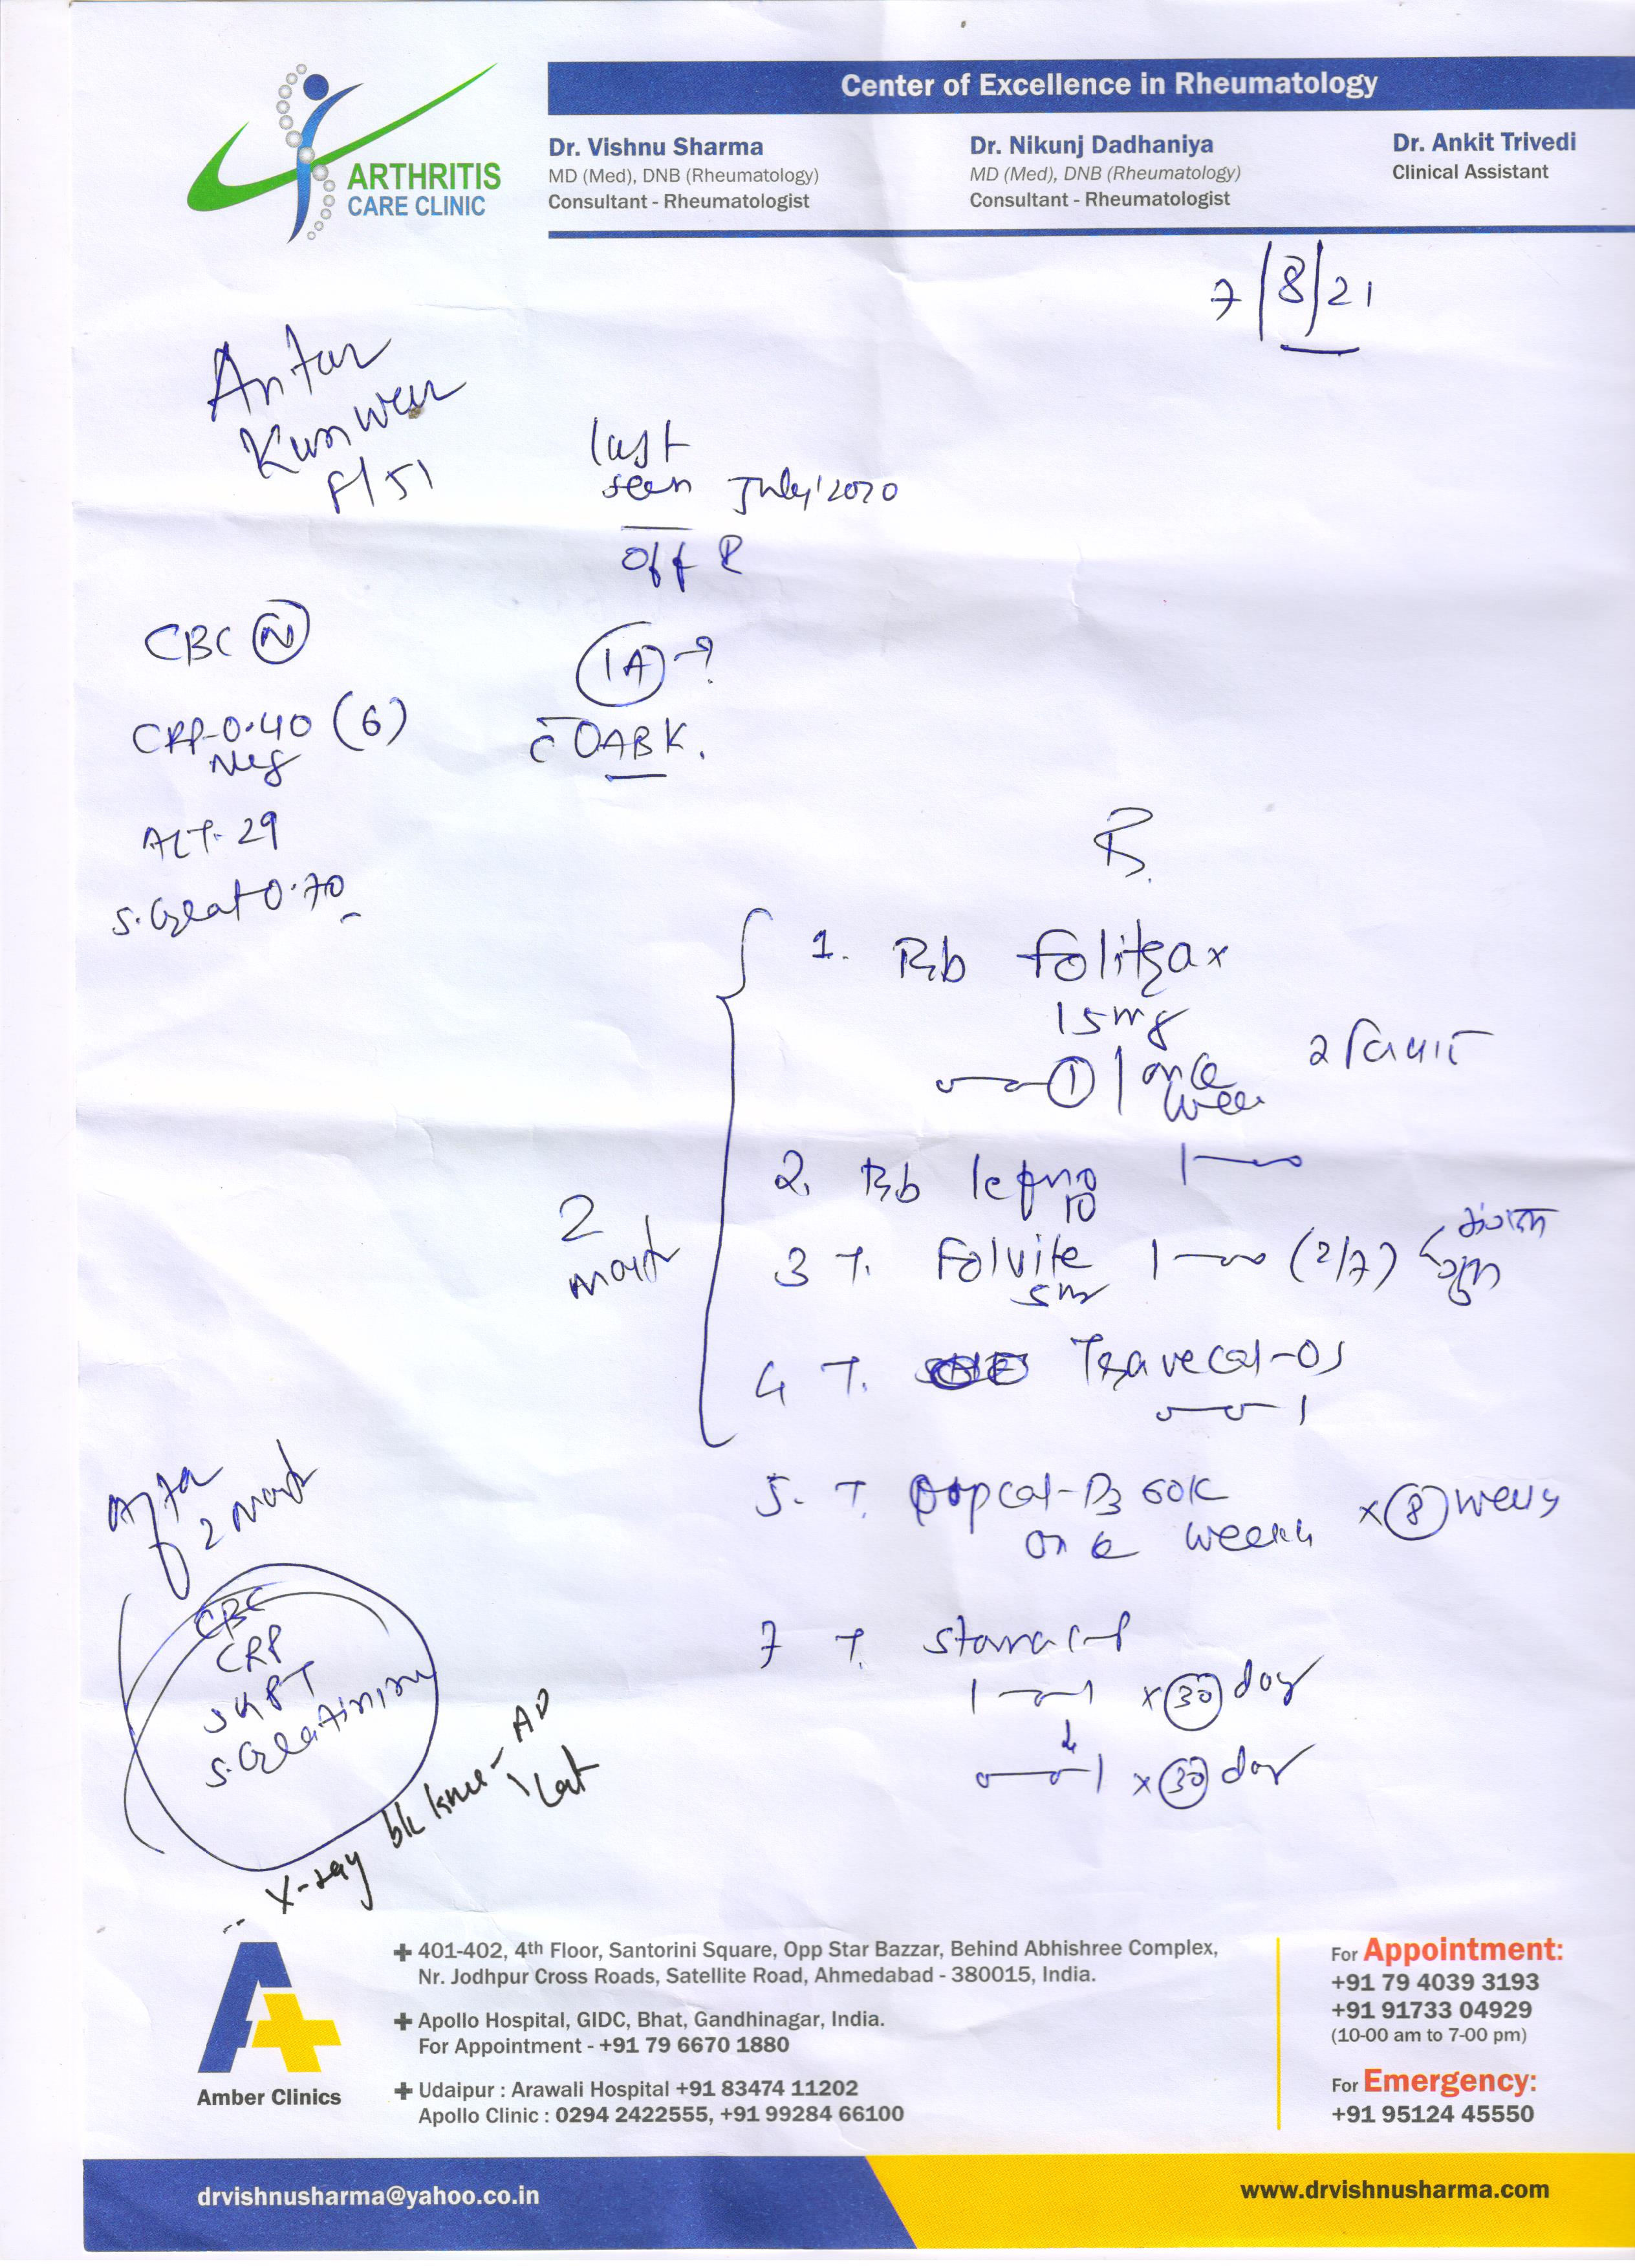 Center of Excellence in Rheumatology
ARTHRITIS
CARE CLINIC
Dr. Vishnu Sharma
MD (Med), DNB (Rheumatology)
Consultant - Rheumatologist
Dr. Nikunj Dadhaniya
MD (Med), DNB (Rheumatology)
Consultant - Rheumatologist
Dr. Ankit Trivedi
Clinical Assistant
7/8/21
Antar
Kunwar
F/51
last
seen July'2020
off R
CBC (N)
CRP-0.40 (6)
Neg
ALT-29
S.Creat 0.70
(IA)-?
c̄ OABK.
R
1. Tab folitrax
15mg
1 / once
week
2. Tab lefno
10
3 T. Folvite 1 (2/7)
5mg
4 T. Travecal-OS
1
5. T. cal-D3 60K
once weekly x (8) weeks
7 T.
1 1 x (30) day
1 x (30) day
2
month
2 month
CBC
CRP
SGPT
S.Creatinine
X-ray bk knee - AP
Lat
Amber Clinics
401-402, 4th Floor, Santorini Square, Opp Star Bazzar, Behind Abhishree Complex,
Nr. Jodhpur Cross Roads, Satellite Road, Ahmedabad - 380015, India.
Apollo Hospital, GIDC, Bhat, Gandhinagar, India.
For Appointment - +91 79 6670 1880
Udaipur : Arawali Hospital +91 83474 11202
Apollo Clinic : 0294 2422555, +91 99284 66100
For Appointment:
+91 79 4039 3193
+91 91733 04929
(10-00 am to 7-00 pm)
For Emergency:
+91 95124 45550
drvishnusharma@yahoo.co.in
www.drvishnusharma.com